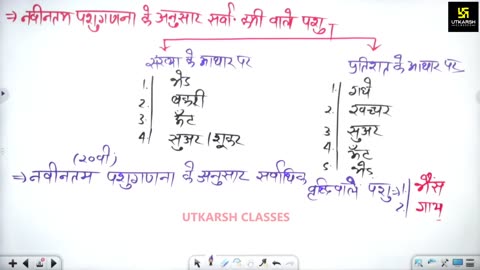 ⇒ नवीनतम पशुगणना के अनुसार सर्वा. कमी वाले पशु
UTKARSH
संख्या के आधार पर
प्रतिशत के आधार पर
1. भेड़
2. बकरी
3 ऊँट
4 सुअर / शूकर
1. गधे
2. खच्चर
3 सुअर
4 ऊँट
5 भेड़
(20वीं)
⇒ नवीनतम पशुगणना के अनुसार सर्वाधिक वृद्धि वाले पशु ⇒ 1. भैंस
2. गाय
UTKARSH CLASSES